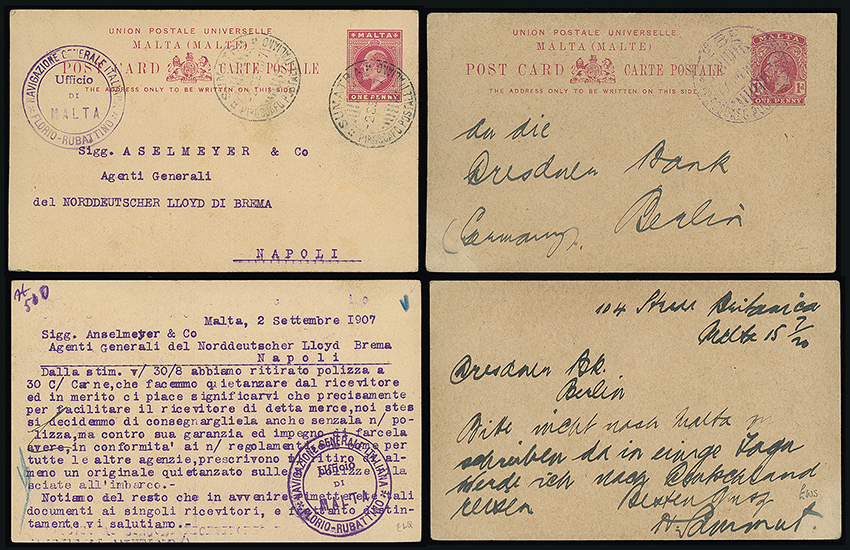 UNION POSTALE UNIVERSELLE
MALTA (MALTE)
POST CARD CARTE POSTALE
THE ADDRESS ONLY TO BE WRITTEN ON THIS SIDE
MALTA
ONE PENNY
NAVIGAZIONE GENERALE ITALIANA
Ufficio
DI
MALTA
FLORIO-RUBATTINO
SUMATRA
PIROSCAFO POSTALE ITALIANO
Sigg. ASELMEYER & Co
Agenti Generali
del NORDDEUTSCHER LLOYD DI BREMA
NAPOLI
UNION POSTALE UNIVERSELLE
MALTA (MALTE)
POST CARD CARTE POSTALE
THE ADDRESS ONLY TO BE WRITTEN ON THIS SIDE
MALTA
1D
ONE PENNY
An die
Dresdner Bank
Berlin
(Germany).
500
Malta, 2 Settembre 1907
Sigg. Anselmeyer & Co
Agenti Generali del Norddeutscher Lloyd Brema
Napoli
Dalla stim. v/ 30/8 abbiamo ritirato polizza a
30 C/ Carne,che facemmo quietanzare dal ricevitore
ed in merito ci piace significarvi che precisamente
per facilitare il ricevitore di detta merce,noi stes
si decidemmo di consegnargliela anche senzala n/ po-
lizza,ma contro sua garanzia ed impegno di farcela
avere,in conformita' ai n/ regolamenti
tutte le altre agenzie,prescrivono il ritiro al-
meno un originale quietanzato sulle polizze
sciate all'imbarco.-
Notiamo del resto che in avvenire tali
documenti ai singoli ricevitori, e distin-
tamente vi salutiamo.-
NAVIGAZIONE GENERALE ITALIANA
Ufficio
DI
MALTA
FLORIO-RUBATTINO
104 Strada Britannica
Malta 15 7/20
Dresdner Bk.
Berlin
Bitte nicht nach Malta zu
schreiben da in einige Tagen
werde ich nach Deutschland
reisen Besten Gruss